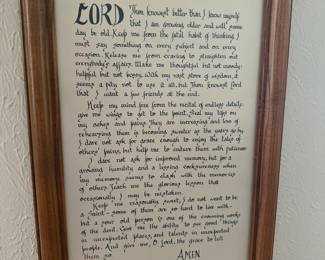 LORD Thou knowest better than I know myself
that I am growing older and will some
day be old. Keep me from the fatal habit of thinking I
must say something on every subject and on every
occasion. Release me from craving to straighten out
everybody's affairs. Make me thoughtful but not moody:
helpful but not bossy. With my vast store of wisdom, it
seems a pity not to use it all, but Thou knowest Lord
that I want a few friends at the end.
Keep my mind free from the recital of endless details:
give me wings to get to the point. Seal my lips on
my aches and pains. They are increasing and love of
rehearsing them is becoming sweeter as the years go by.
I dare not ask for grace enough to enjoy the tales of
others' pains, but help me to endure them with patience.
I dare not ask for improved memory, but for a
growing humility and a lessing cocksureness when
my memory seems to clash with the memories
of others. Teach me the glorious lesson that
occasionally I may be mistaken.
Keep me reasonably sweet; I do not want to be
a Saint - some of them are so hard to live with -
but a sour old person is one of the crowning works
of the devil. Give me the ability to see good things
in unexpected places, and talents in unexpected
people. And give me, O Lord, the grace to tell
them so. AMEN